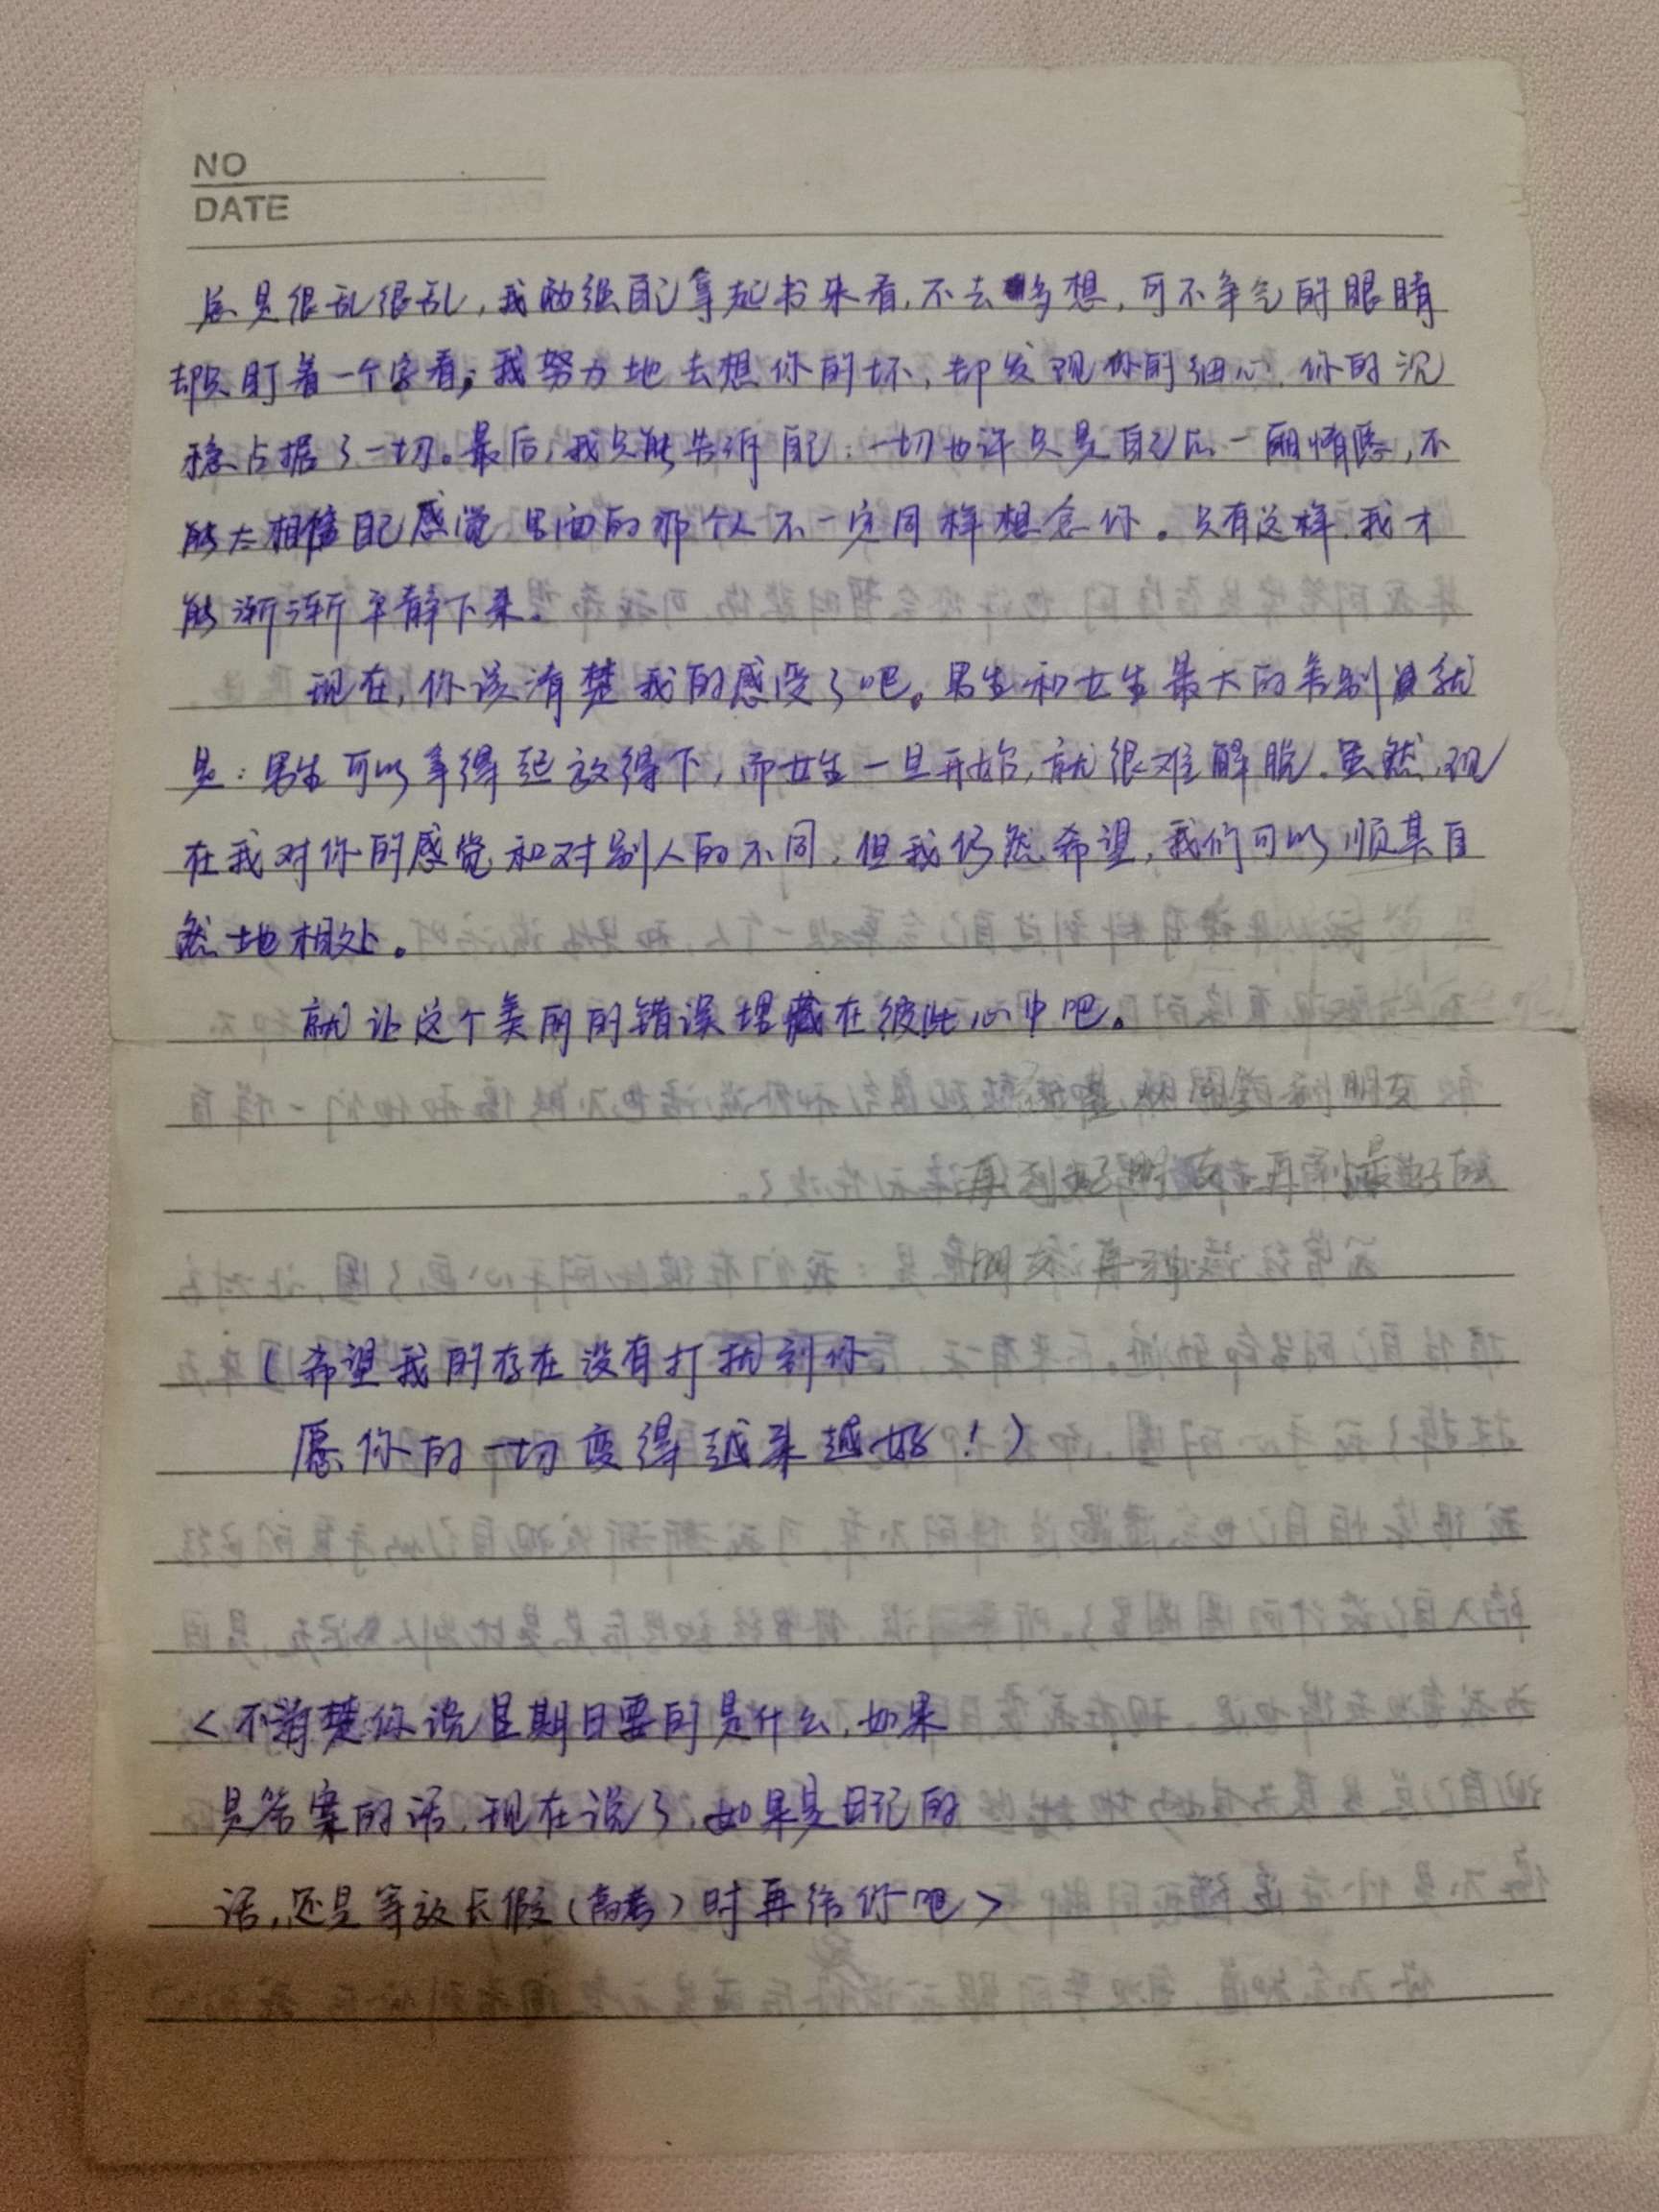 NO
DATE
总是很乱很乱，我勉强自己拿起书来看，不去多想，可不争气的眼睛
却只盯着一个字看；我努力地去想你的坏，却发现你的细心、你的沉
稳占据了一切。最后，我只能告诉自己：一切也许只是自己的一厢情愿，不
能太相信自己感觉，里面的那个人不一定同样想念你。只有这样，我才
能渐渐平静下来。
现在，你该清楚我的感受了吧。男生和女生最大的差别就
是：男生可以拿得起放得下，而女生一旦开始，就很难解脱。虽然，现
在我对你的感觉和对别人的不同，但我仍然希望，我们可以顺其自
然地相处。
就让这个美丽的错误埋藏在彼此心中吧。
（希望我的存在没有打扰到你、
愿你的一切变得越来越好！）
<不清楚你说星期日要的是什么，如果
是答案的话，现在说了，如果是日记的
话，还是等放长假（高考）时再给你吧>